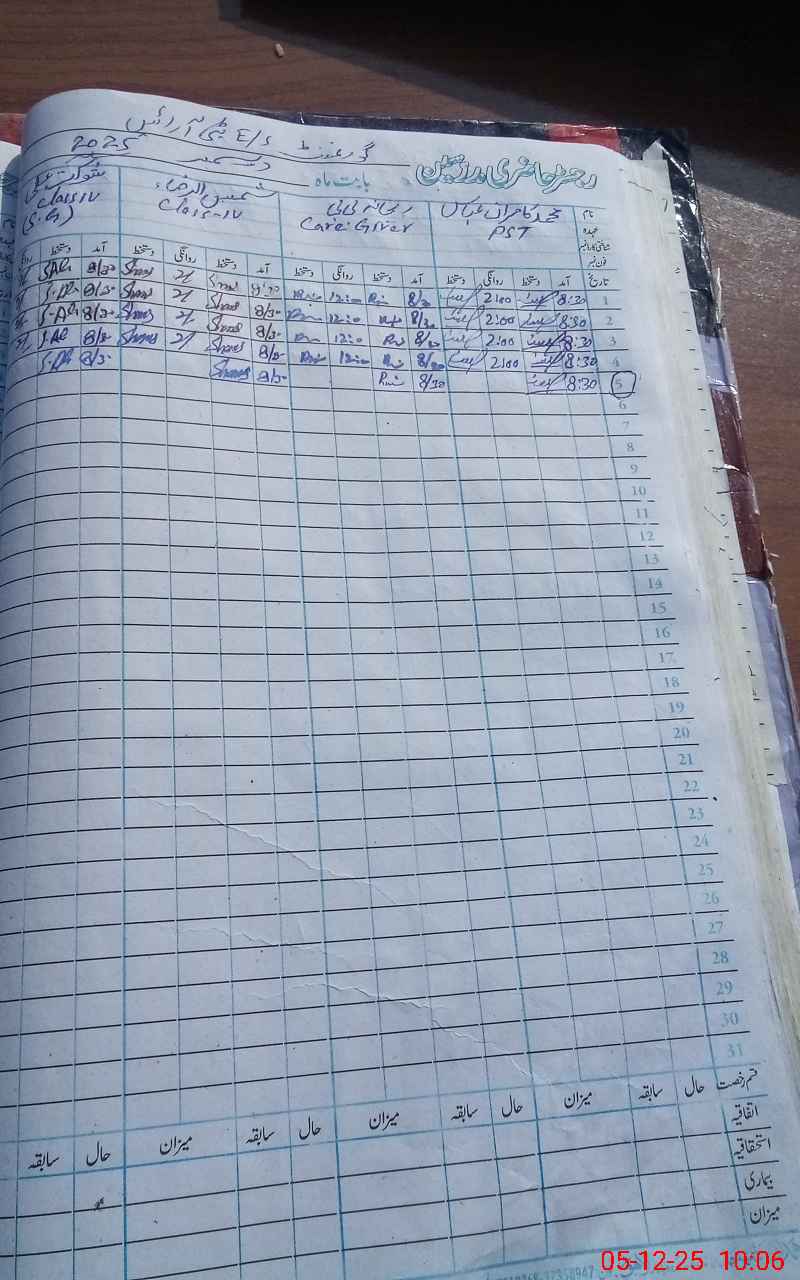 رجسٹر حاضری مدرسین بابت ماہ دسمبر 2025
گورنمنٹ E/S
نام محمد کامران عباس ریحانہ بی بی شمس الرضاء شوکت علی
عہدہ PST Care Giver Class-IV Class IV
(S.G)
فون نمبر
تاریخ آمد دستخط روانگی دستخط آمد دستخط روانگی دستخط آمد دستخط روانگی دستخط آمد دستخط
1 8:30 2:00 8/30 12:00 8/30 Shams 2/ Shams 8/30 S.Ali
2 8:30 2:00 8/30 12:00 8/30 Shams 2/ Shams 8/30 S.Ali
3 8:30 2:00 8/30 12:00 8/30 Shams 2/ Shams 8/30 S.Ali
4 8:30 2:00 8/30 12:00 8/30 Shams 2/ Shams 8/30 S.Ali
5 8:30 8/30 8/30 Shams 8/30 S.Ali
6
7
8
9
10
11
12
13
14
15
16
17
18
19
20
21
22
23
24
25
26
27
28
29
30
31
قسم رخصت حال سابقہ میزان حال سابقہ میزان حال سابقہ میزان حال سابقہ
اتفاقیہ
استحقاقیہ
بیماری
میزان
05-12-25 10:06